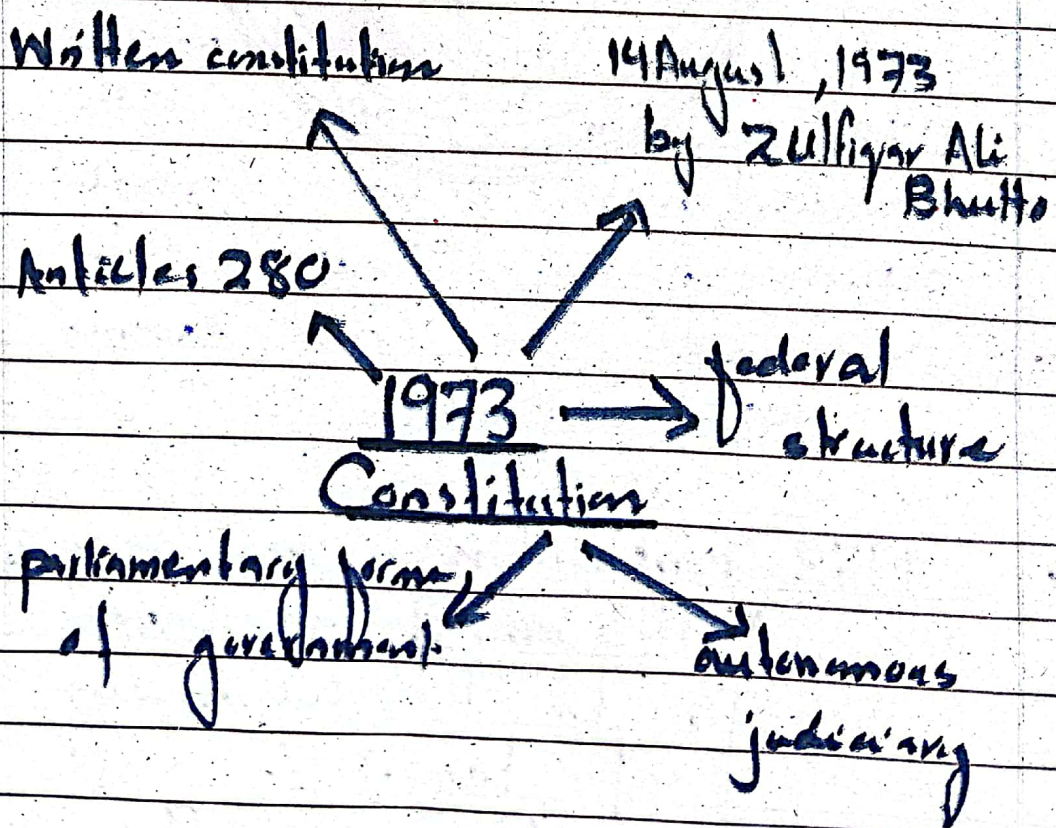 Written constitution
14 August, 1973
by Zulfiqar Ali
Bhutto
Articles 280
1973
Constitution
federal
structure
parliamentary form
of government.
autonomous
judiciary